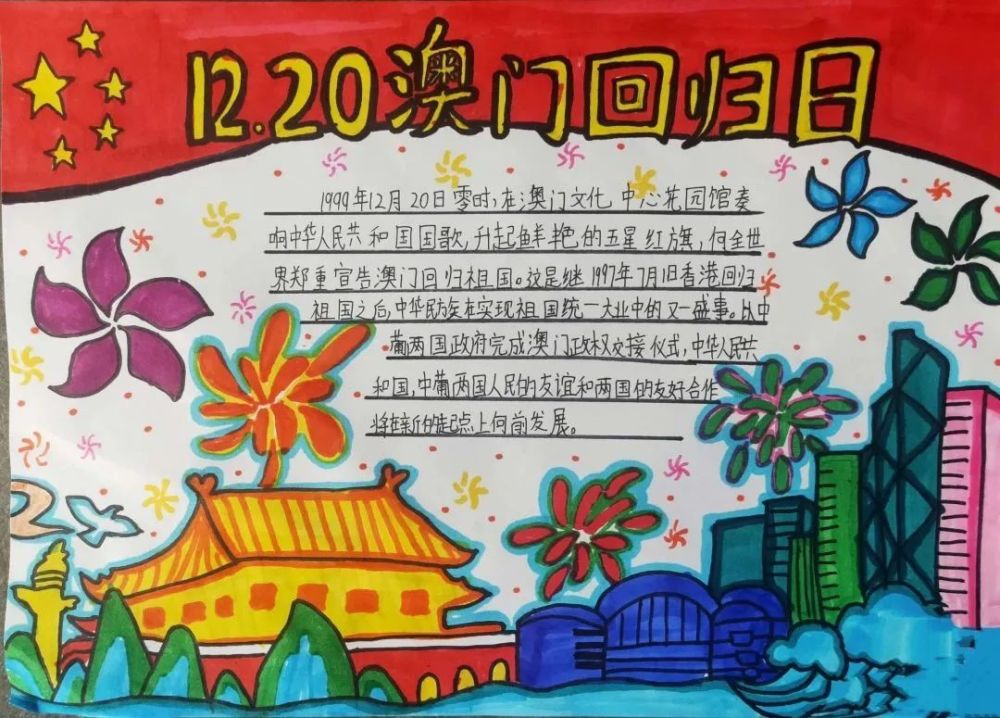 12.20澳门回归日
1999年12月20日零时，在澳门文化中心花园馆奏
响中华人民共和国国歌，升起鲜艳的五星红旗，向全世
界郑重宣告澳门回归祖国。这是继1997年7月1日香港回归
祖国之后，中华民族在实现祖国统一大业中的又一盛事。以中
葡两国政府完成澳门政权交接仪式，中华人民共
和国，中葡两国人民的友谊和两国的友好合作
将在新的起点上向前发展。